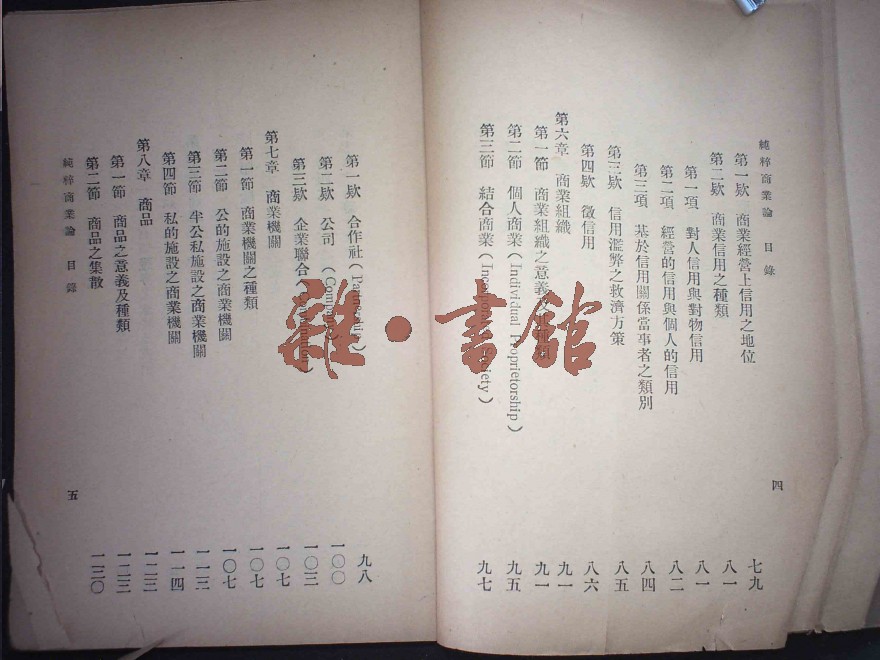 純粹商業論　目錄
第一欵　商業經營上信用之地位　七九
第二欵　商業信用之種類　八一
第一項　對人信用與對物信用　八一
第二項　經營的信用與個人的信用　八二
第三項　基於信用關係當事者之類別　八四
第三欵　信用濫弊之救濟方策　八五
第四欵　徵信用　八六
第六章　商業組織　九一
第一節　商業組織之意義　九一
第二節　個人商業（Individual Proprietorship）　九五
第三節　結合商業（　九七
四
第一欵　合作社（　九八
第二欵　公司（　一〇〇
第三欵　企業聯合　一〇三
第七章　商業機關　一〇七
第一節　商業機關之種類　一〇七
第二節　公的施設之商業機關　一〇七
第三節　半公私施設之商業機關　一一三
第四節　私的施設之商業機關　一一四
第八章　商品　一二三
第一節　商品之意義及種類　一二三
第二節　商品之集散　一三〇
純粹商業論　目錄
五
雜·書館